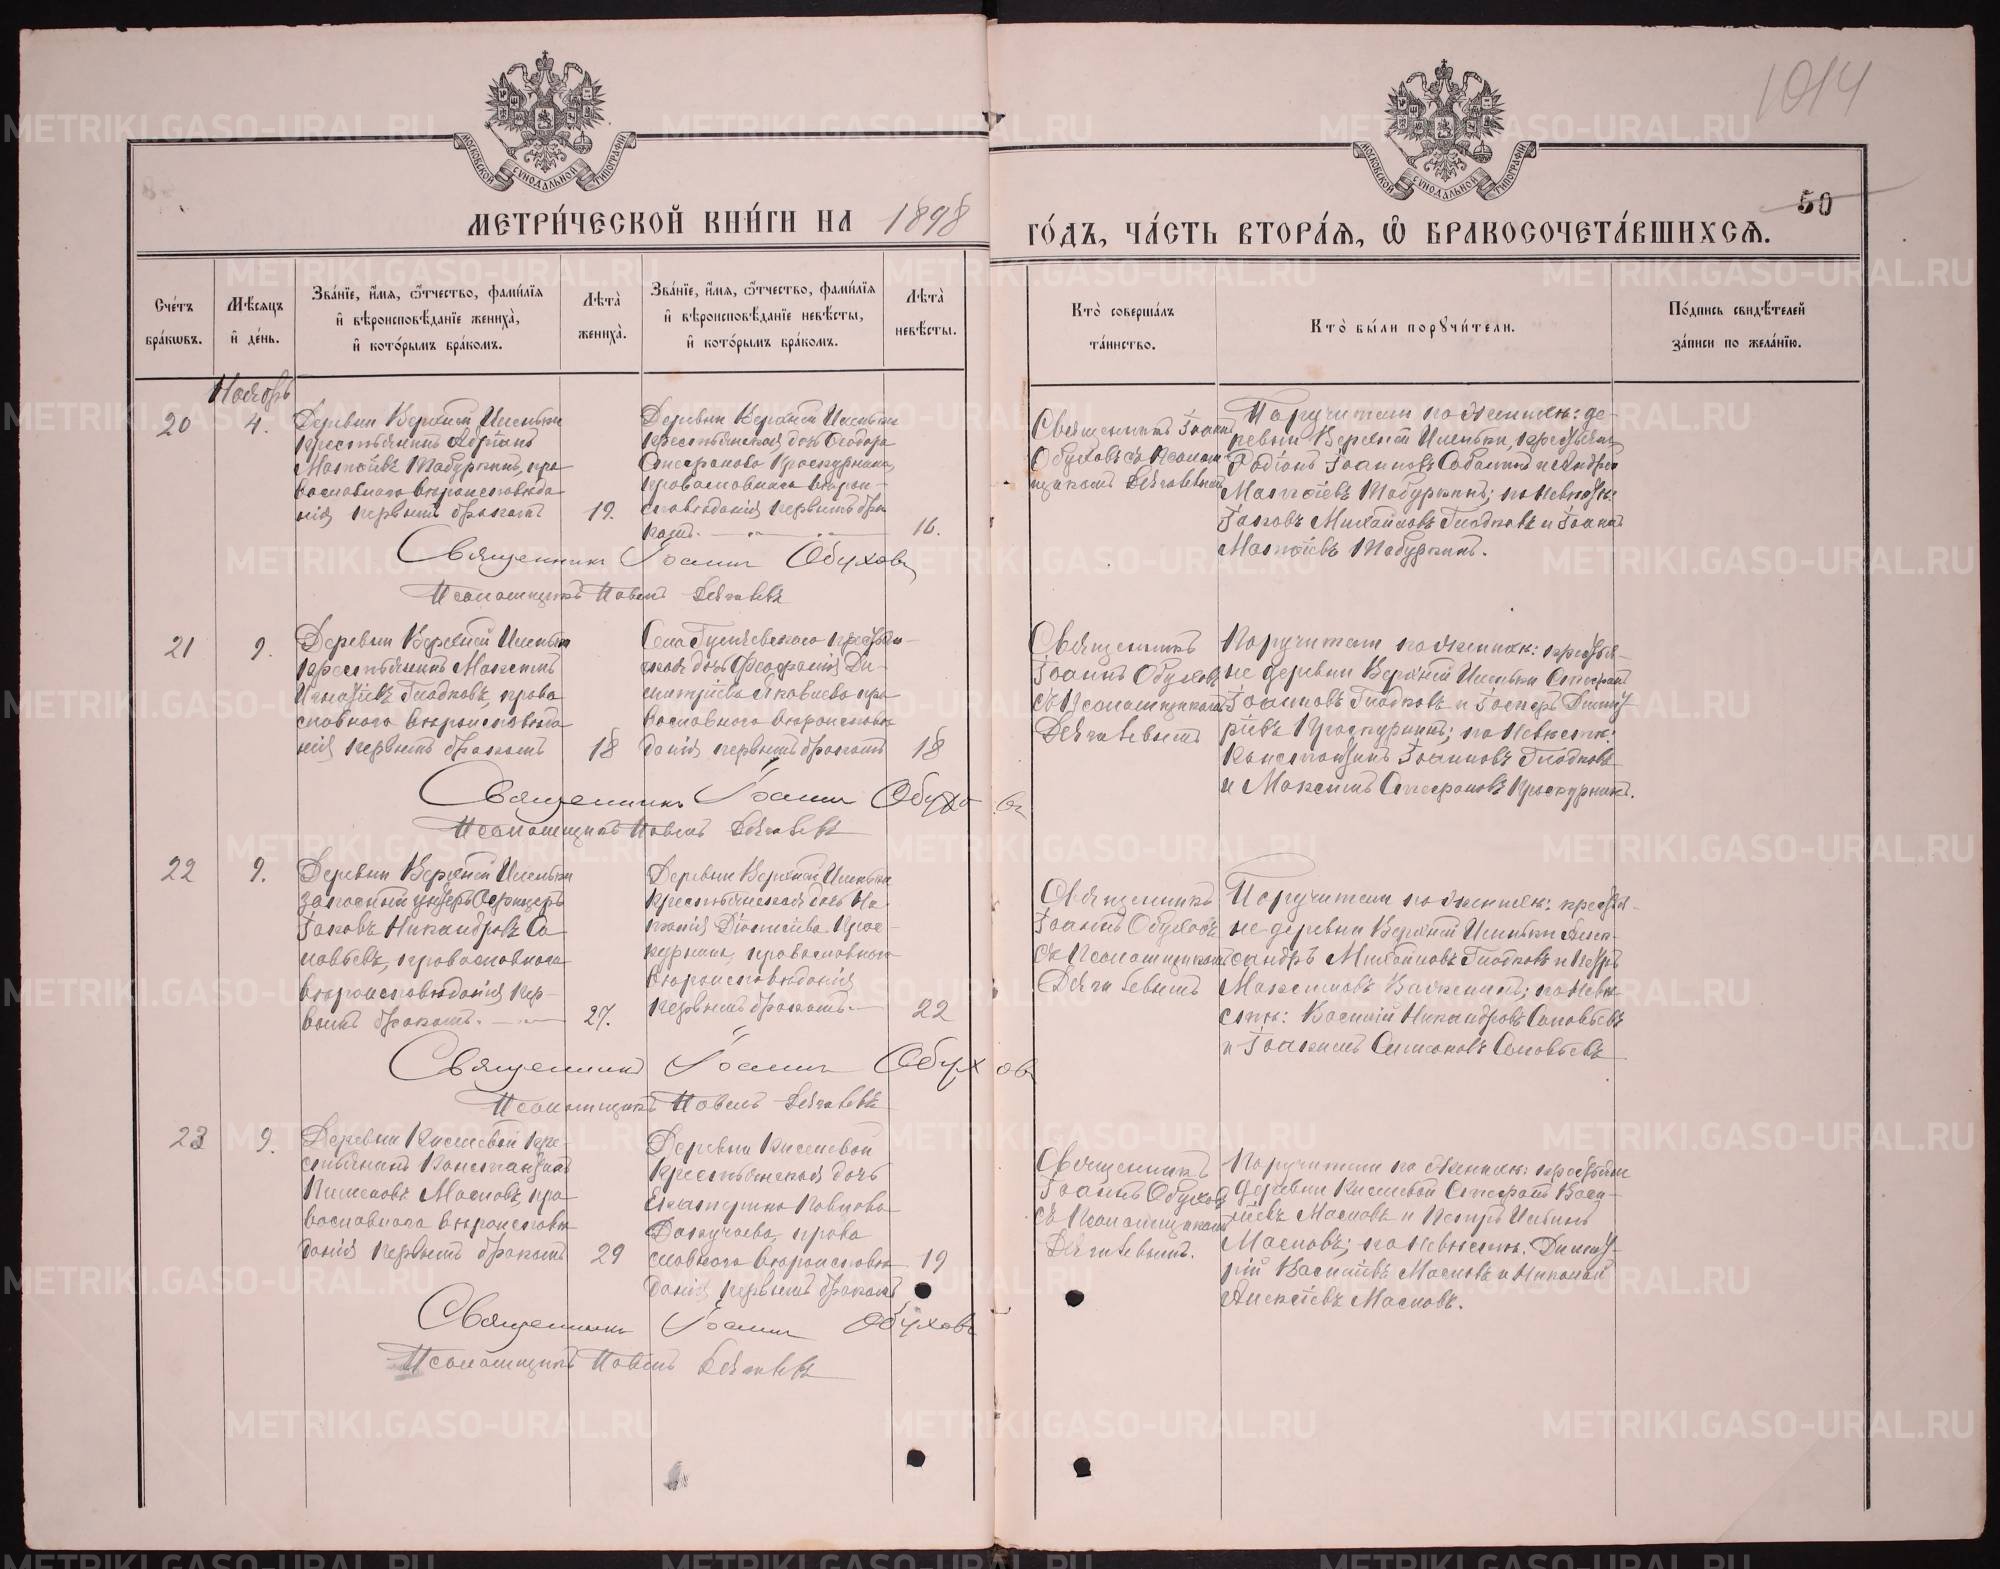 1014
50
МОСКОВСКОЙ СѴНОДАЛЬНОЙ ТИПОГРАФІИ
МОСКОВСКОЙ СѴНОДАЛЬНОЙ ТИПОГРАФІИ
МЕТРИ́ЧЕСКОЙ КНИ́ГИ НА 1898 ГО́ДЪ, ЧА́СТЬ ВТОРА́Я, Ѡ БРАКОСОЧЕТА́ВШИХСЯ.
Сче́тъ бра́кѡвъ.
Мѣ́сяцъ и҆ де́нь.
Зва́нїе, и҆́мя, ѻ҆́тчество, фами́лїя и҆ вѣроисповѣ́данїе жениха̀, и҆ кото́рымъ бра́комъ.
Лѣта̀ жениха̀.
Зва́нїе, и҆́мя, ѻ҆́тчество, фами́лїя и҆ вѣроисповѣ́данїе невѣ́сты, и҆ кото́рымъ бра́комъ.
Лѣта̀ невѣ́сты.
Кто̀ соверша́лъ та́инство.
Кто̀ бы́ли порꙋчи́тели.
По́дпись свидѣ́телей за́писи по жела́нїю.
Ноябрь
20
4.
Деревни Верхней
крестьянинъ Адріанъ
Матѳіевъ Табуркинъ, пра
вославнаго вѣроисповѣда
нія первымъ бракомъ
19.
Деревни Верхней
крестьянская дочь Ѳеодора
Стефанова Проскурника,
православнаго вѣроис-
повѣданія первымъ бра
комъ.
16.
Священникъ Іоаннъ
Обуховъ съ Псалом
щикомъ
Поручители по женихѣ: де-
ревни Верхней
Родіонъ Іоанновъ
Матѳіевъ Табуркинъ; по невѣстѣ:
Іаковъ Михайловъ Гладковъ и Іоаннъ
Матѳіевъ Табуркинъ.
Священникъ Іоаннъ Обуховъ
Псаломщикъ Павелъ
21
9.
Деревни Верхней
крестьянинъ Максимъ
Игнатіевъ Гладковъ, право
славнаго вѣроисповѣда
нія первымъ бракомъ
18
Села
дочь Ди-
митріева Яковлева пра-
вославнаго вѣроисповѣ
данія первымъ бракомъ
18
Священникъ
Іоаннъ Обуховъ
съ Псаломщикомъ
Поручители по женихѣ: крестья-
не деревни Верхней Стефанъ
Іоанновъ Гладковъ и Дмит
ріевъ; по невѣстѣ:
Константинъ Іоанновъ Гладковъ
и Максимъ Стефановъ
Священникъ Іоаннъ Обуховъ
Псаломщикъ Павелъ
22
9.
Деревни Верхней
запасный унтеръ Офицеръ
Іаковъ Никандровъ Со
ловьевъ, православнаго
вѣроисповѣданія пер-
вымъ бракомъ.
27.
Деревни Верхней
крестьянская дочь
Діонисіева Прос-
курника, православнаго
вѣроисповѣданія
первымъ бракомъ.
22
Священникъ
Іоаннъ Обуховъ
съ Псаломщикомъ
Поручители по женихѣ: крестья-
не деревни Верхней Алек-
сандръ Михайловъ Гладковъ и Петръ
Максимовъ; по невѣ
стѣ: Василій Никандровъ Соловьевъ
и Іоакимъ Симоновъ Соловьевъ
Священникъ Іоаннъ Обуховъ
Псаломщикъ Павелъ
23
9.
Деревни Киселевой кре-
стьянинъ Константинъ
Масловъ, пра-
вославнаго вѣроисповѣ
данія первымъ бракомъ
29
Деревни Киселевой
крестьянская дочь
Екатерина Павлова
Докучаева, право
славнаго вѣроисповѣ
данія первымъ бракомъ
19
Священникъ
Іоаннъ Обуховъ
съ Псаломщикомъ
Поручители по женихѣ: крестьяне
деревни Киселевой Стефанъ Васи-
ліевъ Масловъ и Петръ
Масловъ; по невѣстѣ: Димит-
рій Василіевъ Масловъ и Николай
Алексіевъ Масловъ.
Священникъ Іоаннъ Обуховъ
Псаломщикъ Павелъ
METRIKI.GASO-URAL.RU